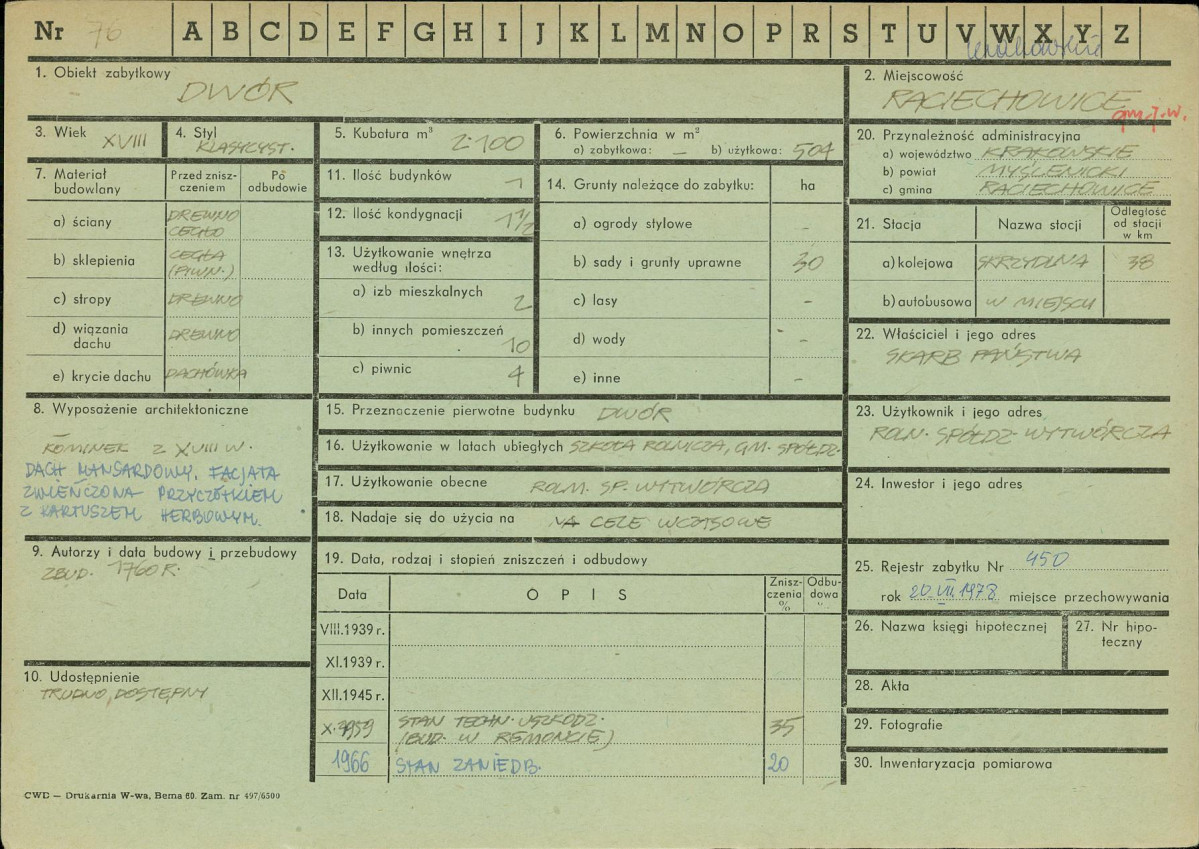 Nr 76 A B C D E F G H I J K L M N O P R S T U V W X Y Z
krakowskie
1. Obiekt zabytkowy
DWÓR
2. Miejscowość
RACIECHOWICE
gm. j. w.
3. Wiek XVIII
4. Styl
KLASYCYST.
5. Kubatura m³ 2.100
6. Powierzchnia w m²
a) zabytkowa: — b) użytkowa: 504
7. Materiał budowlany
Przed zniszczeniem
Po odbudowie
a) ściany DREWNO
CEGŁO
b) sklepienia CEGŁA
(PIWN.)
c) stropy DREWNO
d) wiązania dachu DREWNO
e) krycie dachu DACHÓWKA
8. Wyposażenie architektoniczne
KOMINEK Z XVIII W.
DACH MANSARDOWY, FACJATA
ZWIEŃCZONA PRZYCZÓŁKIEM
Z KARTUSZEM HERBOWYM.
9. Autorzy i data budowy i przebudowy
ZBUD. 1760 R.
10. Udostępnienie
TRUDNO DOSTĘPNY
11. Ilość budynków 1
12. Ilość kondygnacji 1 1/2
13. Użytkowanie wnętrza
według ilości:
a) izb mieszkalnych 2
b) innych pomieszczeń 10
c) piwnic 4
14. Grunty należące do zabytku: ha
a) ogrody stylowe -
b) sady i grunty uprawne 30
c) lasy -
d) wody -
e) inne -
15. Przeznaczenie pierwotne budynku DWÓR
16. Użytkowanie w latach ubiegłych SZKOŁA ROLNICZA, GM. SPÓŁDZ.
17. Użytkowanie obecne ROLN. SP. WYTWÓRCZA
18. Nadaje się do użycia na NA CELE WCZASOWE
19. Data, rodzaj i stopień zniszczeń i odbudowy
Data OPIS Zniszczenia % Odbudowa %
VIII.1939 r.
XI.1939 r.
XII.1945 r.
X.1959 STAN TECHN. USZKODZ. 35
(BUD. W REMONCIE)
1966 STAN ZANIEDB. 20
20. Przynależność administracyjna
a) województwo KRAKOWSKIE
b) powiat MYŚLENICKI
c) gmina RACIECHOWICE
21. Stacja Nazwa stacji Odległość od stacji w km
a) kolejowa SKRZYDLNA 38
b) autobusowa W MIEJSCU
22. Właściciel i jego adres
SKARB PAŃSTWA
23. Użytkownik i jego adres
ROLN. SPÓŁDZ. WYTWÓRCZA
24. Inwestor i jego adres
25. Rejestr zabytku Nr 450
rok 20.VII.1978 miejsce przechowywania
26. Nazwa księgi hipotecznej
27. Nr hipoteczny
28. Akta
29. Fotografie
30. Inwentaryzacja pomiarowa
CWD — Drukarnia W-wa, Bema 60. Zam. nr 497/6500